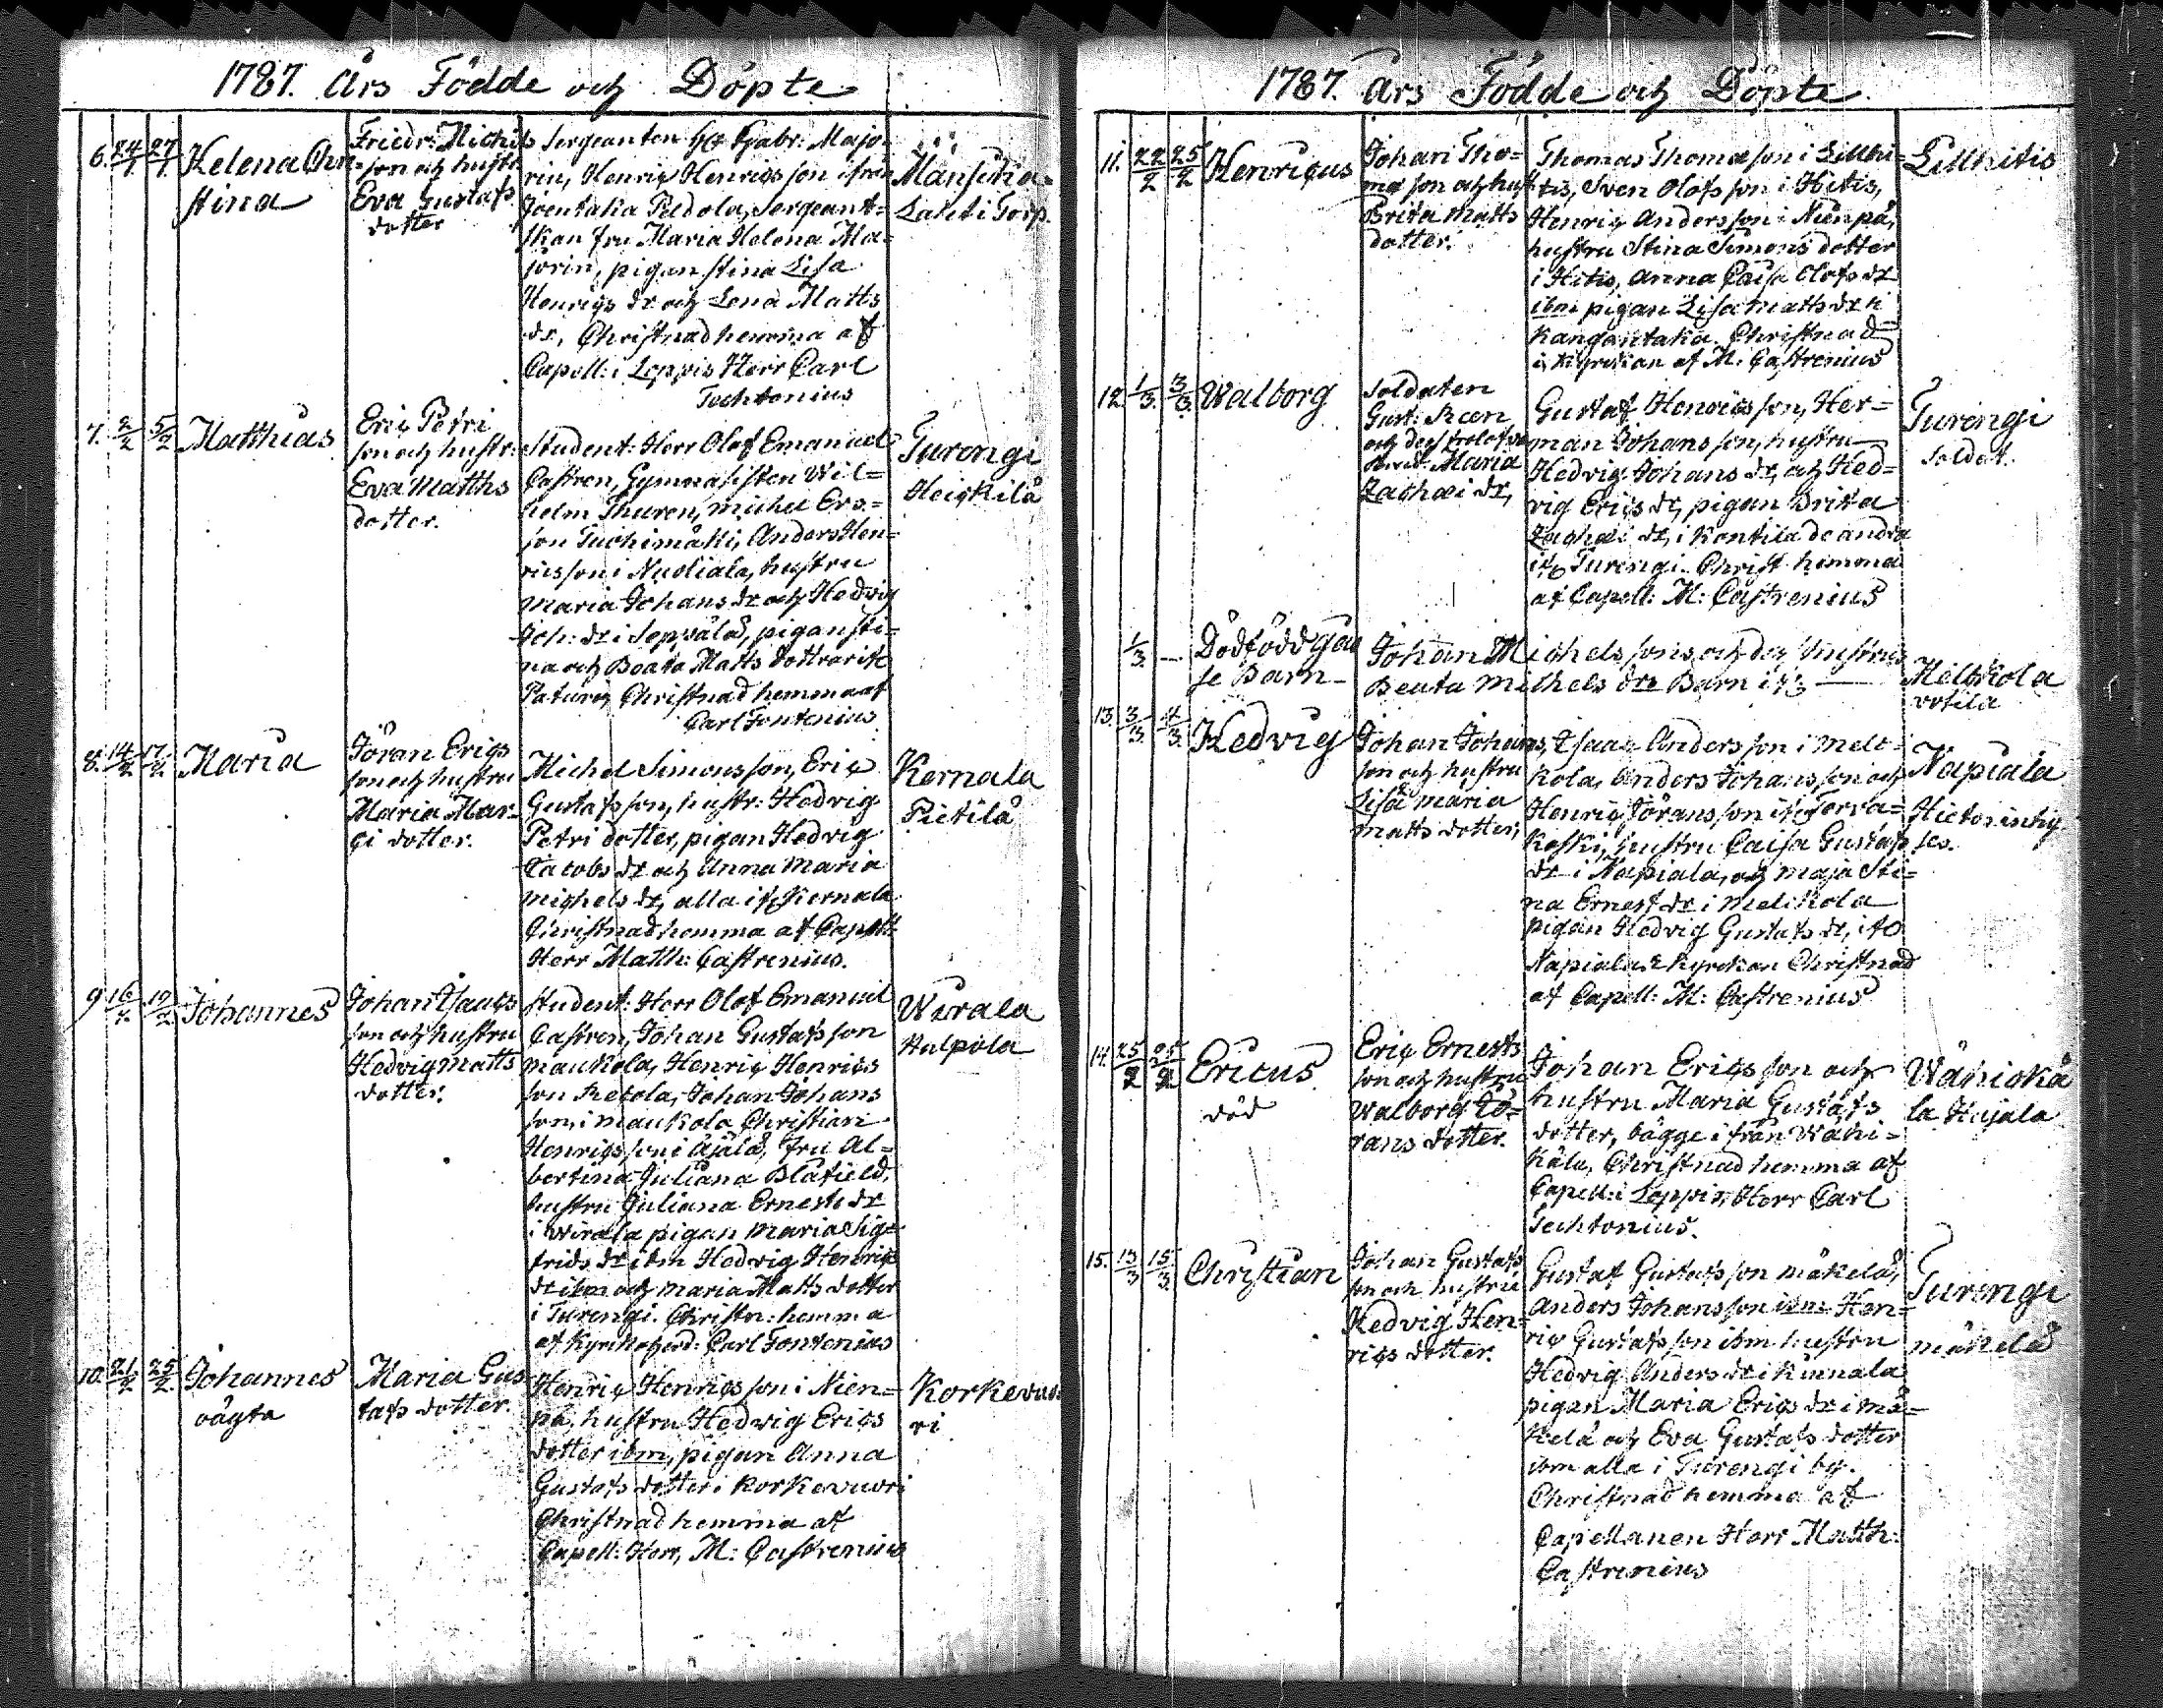 1787. Års Födde och Döpte
6. 24/1 27/1
Helena Chri=
stina
Friedr: Michels
son och hustr
Eva Gustafs
dotter
Sergeanten H:r Gabr: Majo=
rin, Henric Henrics son ifrån
Joentaka Pedola, Sergeant=
skan fru Maria Helena Ma=
jorin, pigan Stina Lisa
Henrics dr och Lena Matts
dr, Christnad hemma af
Capell: i Loppis Herr Carl
Techtonius
Laketi Torp.
7. 2/2 5/2
Matthias
Eric Petri
son och hustr:
Eva Matths
dotter.
Student: Herr Olof Emanuel
Castren, Gymnasisten Wil=
helm Thuren, Michel Ers=
son Tuohimäki, Anders Hen=
ricsson i Nuoliala, hustru
Maria Johans dr och Hedvig
Joh: dr i Sepvälä, pigan Sti=
na och Beata Matts dottrar
Christnad hemma af
Carl Fontenius
Turengi
Heickilä
8. 14/2 17/2
Maria
Jöran Erics
son och hustru
Maria Mar=
ci dotter.
Michel Simonsson, Eric
Gustafsson, hustr: Hedvig
Petri dotter, pigan Hedvig
Jacobs dr och Anna Maria
Michels dr, alla ifr Kernala
Christnad hemma af Capell:
Herr Matth: Castrenius.
Kernala
Pietilä
9 16/2 19/2
Johannes
Johan Isaacs
son och hustru
Hedvig Matts
dotter.
Student: Herr Olof Emanuel
Castren, Johan Gustafs son
Maukola, Henric Henrics
son Retola, Johan Johans
son i Maukola Christian
Henrics son i Äjälä, fru Al=
bertina Juliana Blåfield,
hustru Juliana Ernests dr
i Wirala pigan Maria Sig=
frids dr ibm Hedvig Henrics
dr ibm och Maria Matts dotter
i Turengi. Christn: hemma
af Kyrkoherd: Carl Fontenius
Wirala
Kulpila
10. 21/2 25/2
Johannes
oägta
Maria Gus
tafs dotter.
Henric Henrics son i Nien=
pä, hustru Hedvig Erics
dotter ibm, pigan Anna
Gustafs dotter i Korkevuori
Christnad hemma af
Capell: Herr, M: Castrenius
Korkevuo
ri
1787. Års Födde och Döpte
11. 22/2 25/2
Henricus
Johan Tho=
ma son och hust
Brita Matts
dotter.
Thomas Thomæ son i Lillhi=
tis, Sven Olofs son i Hitis,
Henric Andersson i Nienpä,
hustru Stina Simons dotter
i Hitis, Anna Caisa Olofs dr
ibm pigan Lisa Matts dr i
Kangantaka. Christnad
i Kyrckan af M. Castrenius
Lillhitis
12. 1/3. 3/3.
Walborg
Soldaten
Maria
Zachæi dr,
Gustaf Henrics son, Her=
man Johans son, hustru
Hedvig Johans dr, och Hed=
vig Erics dr, pigan Brita
Zachæi dr, i Kontila de andra
ifr Turengi. Christ. hemma
af Capell: M: Castrenius
Turengi
Soldat.
1/3. —
Dödfödd gås
se Barn —
Johan Michels sons och des hustrus
Beata Michels drs Barn ifr —
13. 3/3. 4/3.
Hedvig
Johan Johans
son och hustru
Lisa Maria
Matts dotter,
Isaac Andersson i Mele=
kola, Anders Johansson och
Henric Jörans son ifr Terva=
koski, hustru Caisa Gustafs
dr i Napiala, och Maja Sti=
na Ernest dr i Melikola
pigan Hedvig Gustafs dr, ifr
Napiala i Kyrckan Christnad
af Capell: M: Castrenius
Napiala
14. 25/2 25/2
Ericus
död
Eric Ernests
son och hustru
Walborg Jö=
rans dotter.
Johan Erics son och
hustru Maria Gustafs
dotter, bägge ifrån Wähi=
kälä, Christnad hemma af
Capell: i Loppis, Herr Carl
Techtonius.
Wähickä
la Hajala
15. 13/3 15/3
Christian
Johan Gustafs
son och hustru
Hedvig Hen=
rics dotter.
Gustaf Gustafs son Mäkelä,
Anders Johansson ibm Hen=
ric Gustafs son ibm hustru
Hedvig Anders dr i Kinnala
pigan Maria Erics dr i Mä=
kelä och Eva Gustafs dotter
ibm alla i Turengi by.
Christnad hemma af
Capellanen Herr Matth:
Castrenius
Turengi
Mäkelä